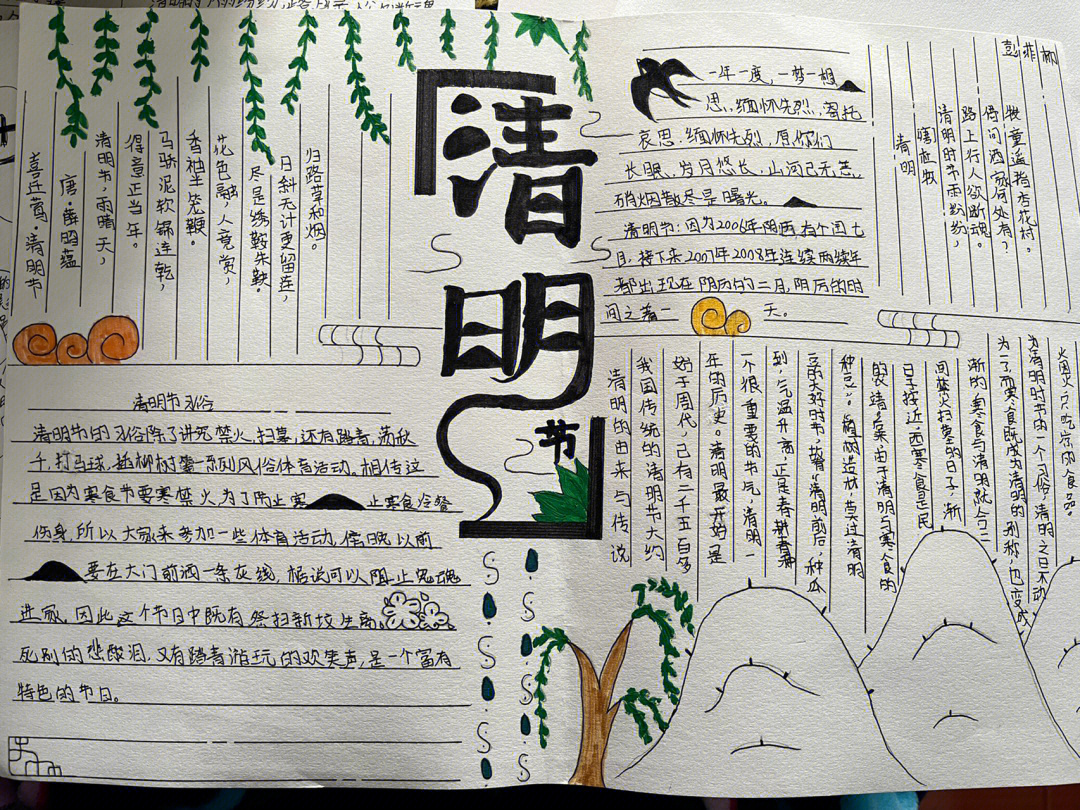 清明节
喜迁莺·清明节
唐·薛昭蕴
清明节,雨晴天,
得意正当年。
马骄泥软锦连乾,
香袖半笼鞭。
花色融,人竟赏,
尽是绣鞍朱鞅。
日斜天计更留连,
归路草和烟。
清明节习俗
清明节的习俗除了讲究禁火,扫墓,还有踏青,荡秋
千,打马球,插柳树等一系列风俗体育活动,相传这
是因为寒食节要寒禁火,为了防止寒
止寒食冷餐
伤身,所以大家来参加一些体育活动,
以前
要在大门前洒一条灰线,据说可以阻止鬼魂
进家,因此这个节日中既有祭扫新坟生离
死别的悲酸泪,又有踏青游玩的欢笑声,是一个富有
特色的节日。
一年一度,一梦一想
思,缅怀先烈,寄托
哀思.缅怀先烈,愿你们
长眠,岁月悠长,山河已无恙,
硝烟散尽是曙光。
清明节:因为2006年阴历,有个闰七
月,接下来2007年2008年连续两年
都出现在阴历的二月,阴历的时
间之着一
天。
彭菲柳
清明
唐杜牧
清明时节雨纷纷,
路上行人欲断魂。
借问酒家何处有?
牧童遥指杏花村。
清明的由来与传说
我国传统的清明节大约
始于周代,已有二千五百多
年的历史。清明最开始是
一个很重要的节气,清明一
到,气温升高,正是春耕春种
的大好时节,故有"清明前后,种瓜
种豆"。植树造林,莫过清明
的农谚。后来由于清明与寒食的
日子接近,而寒食是民
间禁火扫墓的日子,渐
渐的,寒食与清明就合二
为一了,而寒食既成为清明的别称,也变成
为清明时节的一个习俗,清明之日不动
烟火,只吃凉的食品。